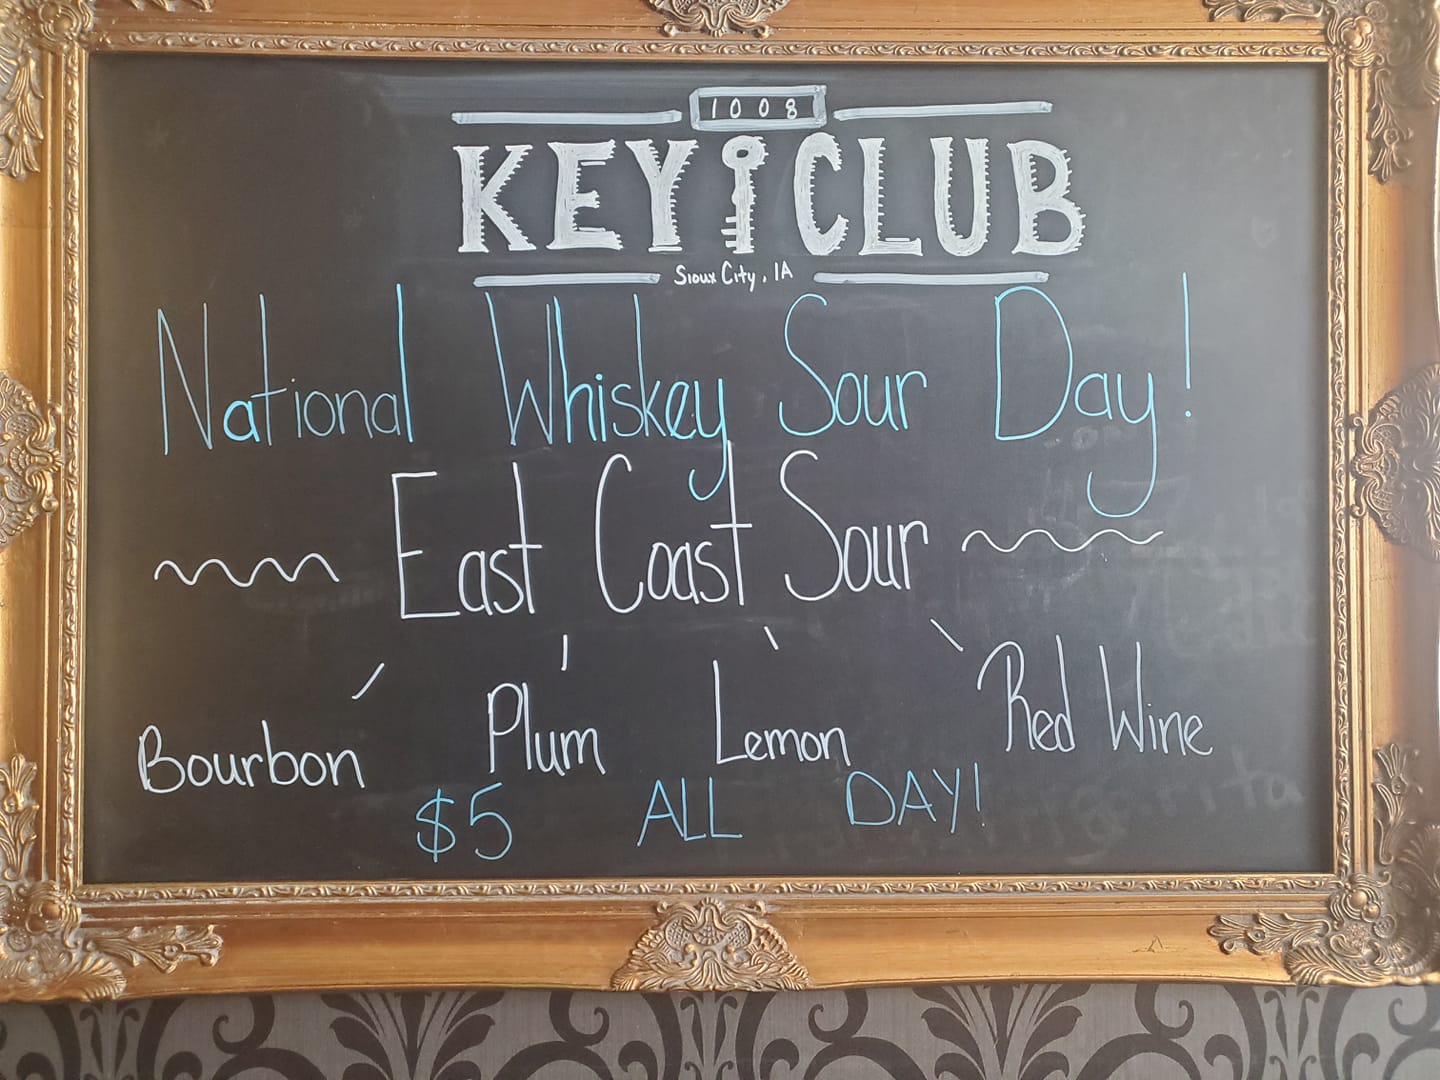 1008
KEY CLUB
Sioux City, IA
National Whiskey Sour Day!
East Coast Sour
Bourbon Plum Lemon Red Wine
$5 ALL DAY!